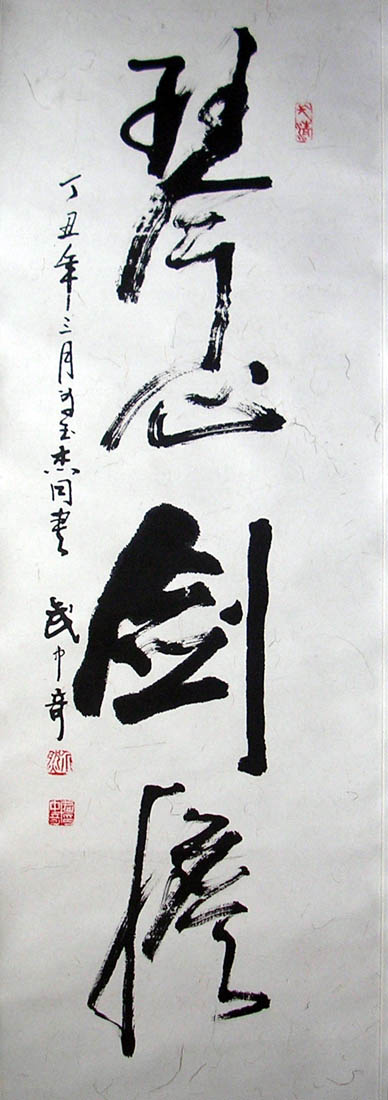 琴心剑胆
丁丑年三月为玉杰同书
武中奇